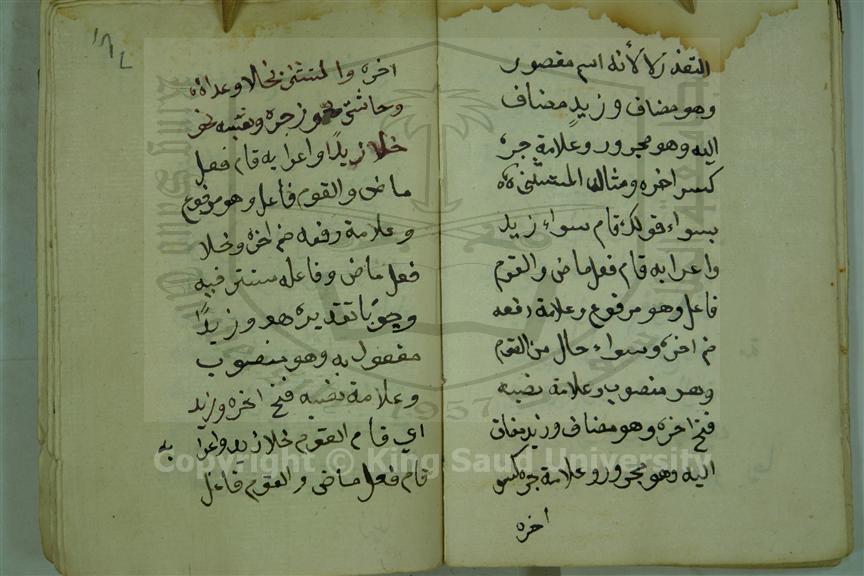 التعذر لا لأنه اسم مقصور
وهو مضاف وزيد مضاف
اليه وهو مجرور وعلامة جره
كسر اخره ومثال المستثنى
بسواء قولك قام سواء زيد
واعرابه قام فعل ماض والقوم
فاعل وهو مرفوع وعلامة رفعه
ضم اخره وسواء حال من القوم
وهو منصوب وعلامة نصبه
فتح اخره وهو مضاف وزيد مضاف
اليه وهو مجرور وعلامة جره كسر
اخره
اخره والمستثنى بخلا وعداه
وحاشى وجره ونصبه نحو
خلا زيدا واعرابه قام فعل
ماض والقوم فاعل وهو مرفوع
وعلامة رفعه ضم اخره وخلا
فعل ماض وفاعله مستتر فيه
وجوبا تقديره هو وزيدا
مفعول به وهو منصوب
وعلامة نصبه فتح اخره وزيد
اي قام القوم خلا زيد واعرابه
قام فعل ماض والقوم فاعل
1957
Copyright © King Saud University